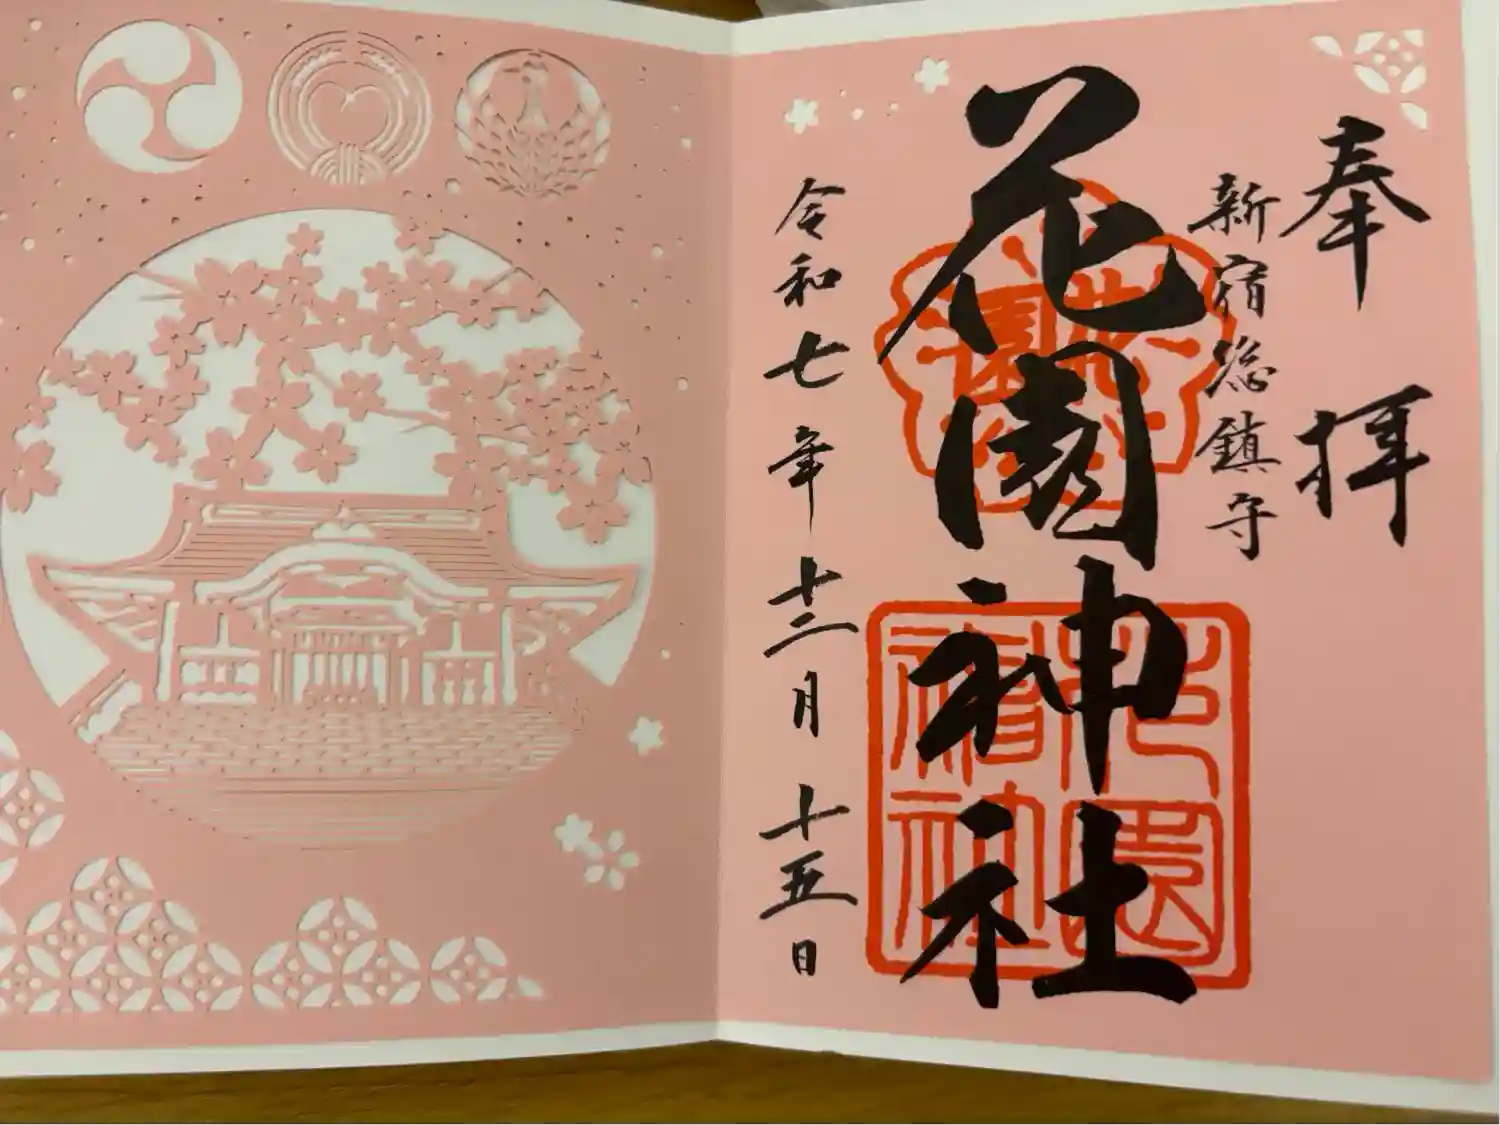 奉拝
新宿総鎮守
花園神社
令和七年十二月十五日